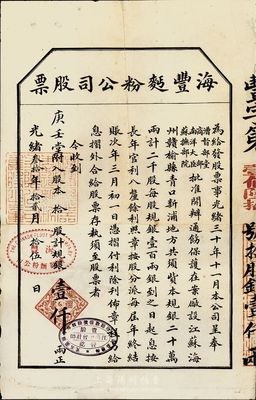 海豐麪粉公司股票
為給發股票事光緒三十年十一月本公司呈奉
商部
南洋大臣
蘇撫部院
批准開辦通飭保護在案廠設江蘇海
州贛榆縣青口新浦地方共須資本規銀二十萬
兩計二千股每股規銀壹百兩銀到之日起息按
長年官利八釐餘利照章按分派每屆年終結
賬次年三月初一日憑摺付利除刊佈章程另給
息摺外合給股票存執須至股票者
今收到
庚壬堂附入股本拾股計規銀壹仟兩正
光緒叁拾年拾弍月拾伍日